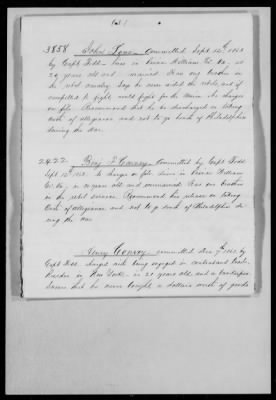 3858 John Lynn - Committed Sept. 12th 1863
by Capt Todd - born in Prince William Co. Va. is
29 years old and married. Has one brother in
the rebel army. Says he never aided the rebels, and if
compelled to fight, would fight for the Union. No charges
on file. Recommend that he be discharged on taking
oath of allegiance and not to go south of Philadelphia
during the war.
2422 Benj. F. Committed by Capt Todd
Sept 12th 1863. No charges on file. born in Prince William
Co. Va., is 20 years old and unmarried. Has one brother
in the rebel service. Recommend his release on taking
Oath of allegiance and not to go south of Philadelphia du
ring the war
Henry Conroy - committed Nov 7th 1863 by
Capt Todd. charged with being engaged in contraband trade.
Resides in New York - is 21 years old and a
he never bought a dollars worth of goods